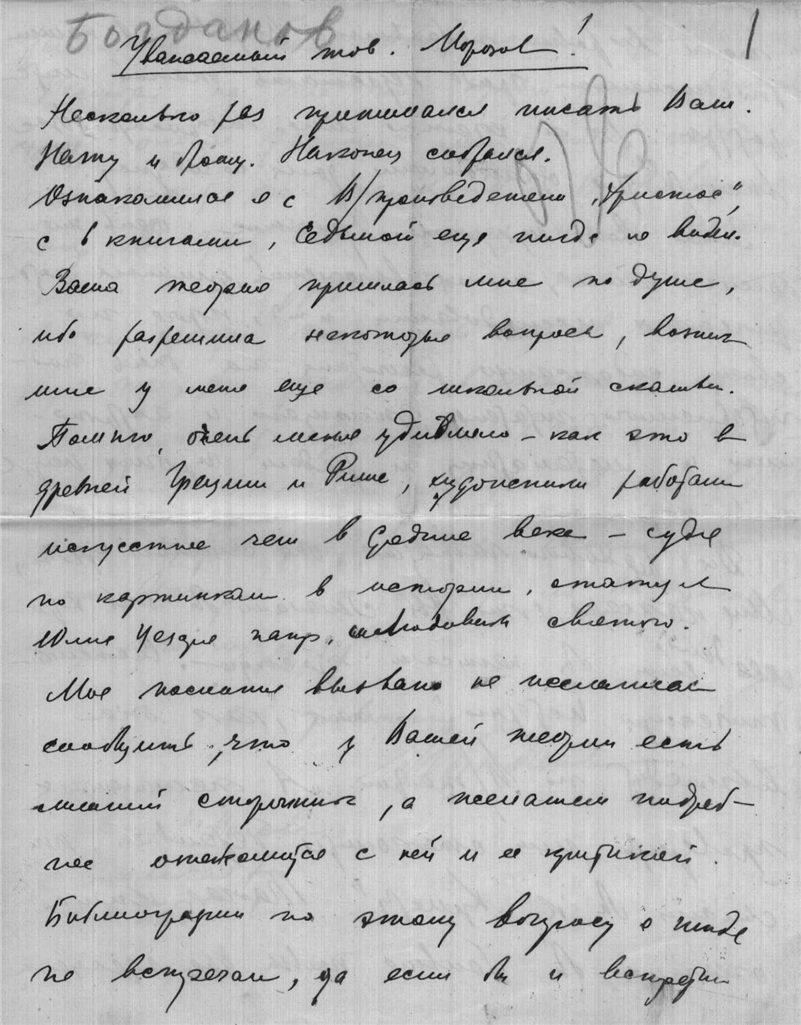 Богданов
1
Уважаемый тов. Морозов!
Несколько раз принимался писать Вам.
Начну и брошу. Наконец собрался.
Ознакомился я с В/произведением „Христос“,
с 6 книгами, Седьмой еще нигде не видел.
Ваша теория пришлась мне по душе,
ибо разрешила некоторые вопросы, возник
шие у меня еще со школьной скамьи.
Помню, очень меня удивляло – как это в
древней Греции и Риме, художники работали
искусстнее чем в Средние века – судя
по картинкам в истории, статуя
Юлия Цезаря напр, и святого.
Мое послание вызвано не желанием
сообщить, что у Вашей теории есть
лишний сторонник, а желанием подроб–
нее ознакомиться с ней и ее критикой.
Библиографии по этому вопросу я нигде
не встречал, да если бы и встретил